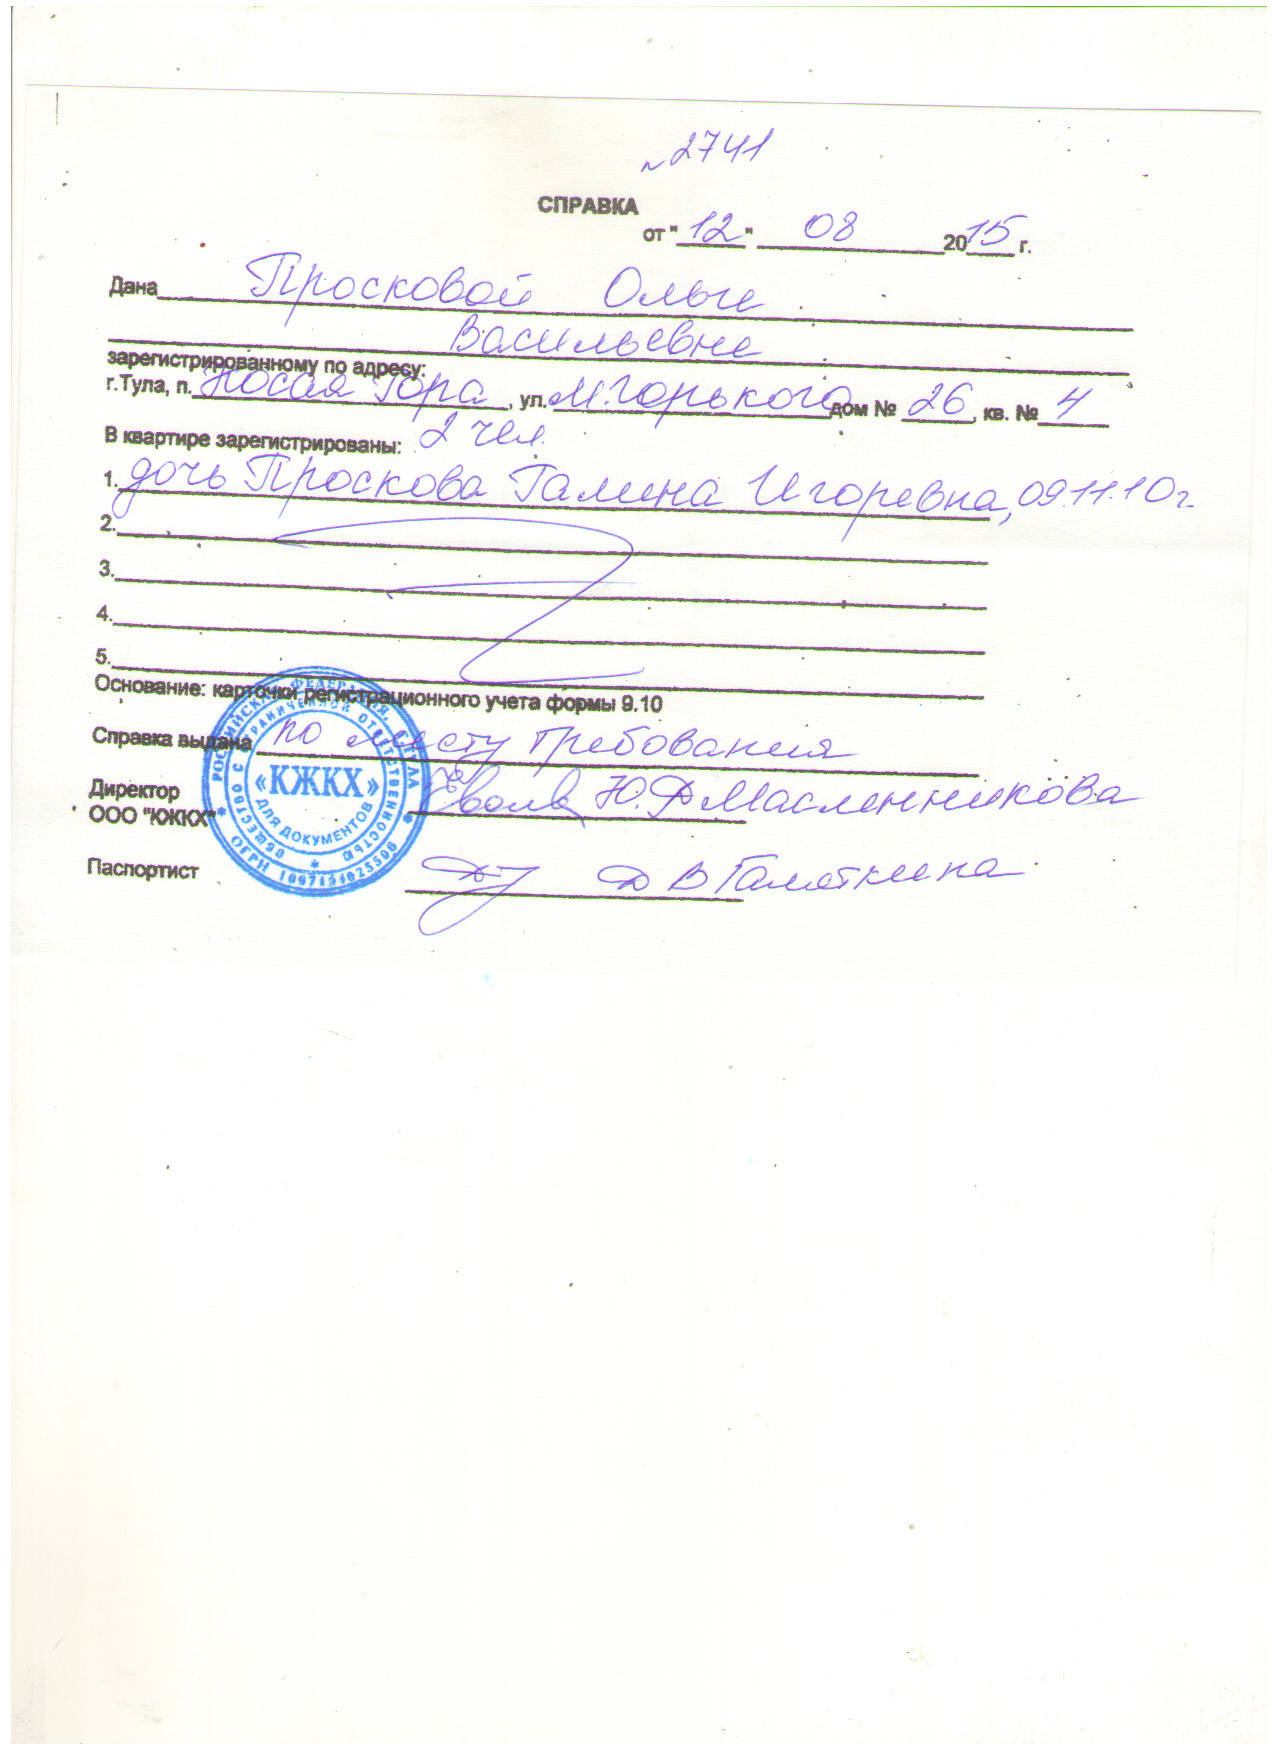 №2741
СПРАВКА
от "12" 08 2015 г.
Дана Просковой Ольге
Васильевне
зарегистрированному по адресу:
г.Тула, п. Косая Гора, ул. М.Горького дом № 26, кв. № 4
В квартире зарегистрированы: 2 чел.
1. дочь Проскова Галина Игоревна, 09.11.10г.
2.
3.
4.
5.
Основание: карточки регистрационного учета формы 9.10
Справка выдана по месту требования
Директор
ООО "КЖКХ" Ю.Ф Масленникова
Паспортист
РОССИЙСКАЯ ФЕДЕРАЦИЯ, г. ТУЛА
ОБЩЕСТВО С ОГРАНИЧЕННОЙ ОТВЕТСТВЕННОСТЬЮ
«КЖКХ»
ДЛЯ ДОКУМЕНТОВ
ОГРН 1097154025506